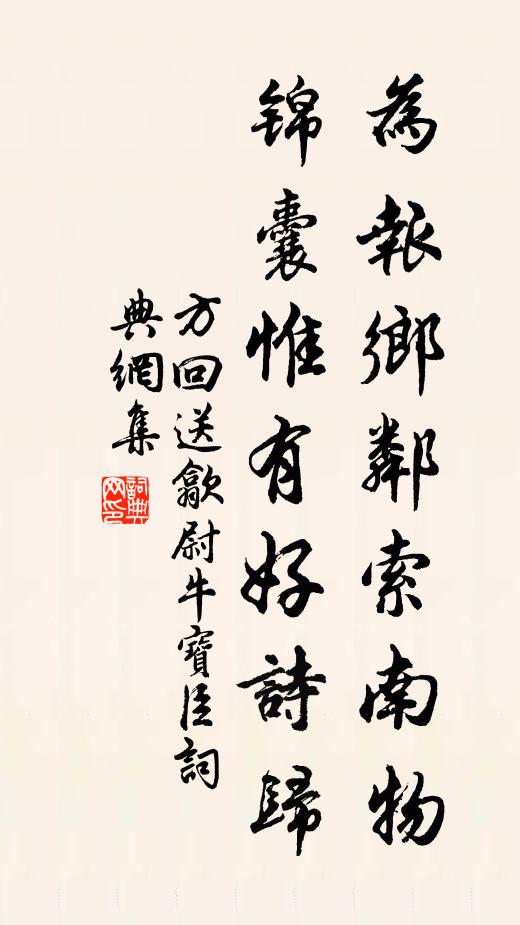 為報鄉鄰索南物
錦囊惟有好詩歸
方回送歙尉牛寶臣詞
典網集
詞典網印